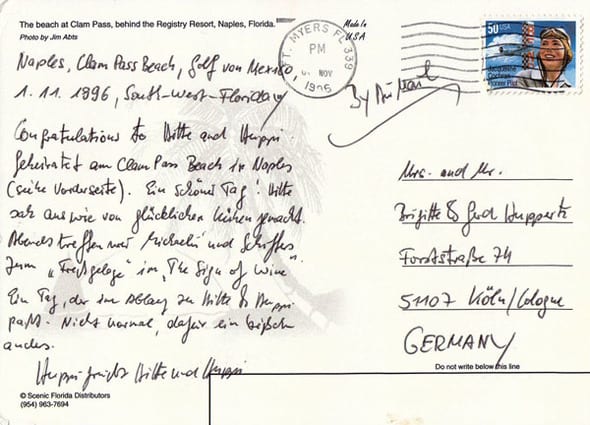 The beach at Clam Pass, behind the Registry Resort, Naples, Florida.
Photo by Jim Abts
Made in
USA
FT. MYERS FL 339
PM
NOV
1996
50 USA
Pioneer Pilot
By Air Mail
Naples, Clam Pass Beach, Golf von Mexiko,
1. 11. 1896, South-West-Florida
Congratulations to Hitte and Huppi.
Geheiratet am Clam Pass Beach in Naples
(siehe Vorderseite). Ein schöner Tag! Hitte
sah aus wie von glücklichen Kühen gemacht.
Abends treffen wir Michaeli und Schiffes
zum „Freßgelage“ im „The Sign of Wine“.
Ein Tag, der im Ablauf zu Hitte & Huppi
paßt. Nicht normal, dafür ein bißchen
anders.
Huppi grüßt Hitte und Huppi
Mrs. and Mr.
Brigitte & Gerd Huppertz
Forststraße 74
51107 Köln/Cologne
GERMANY
Do not write below this line
© Scenic Florida Distributors
(954) 963-7694